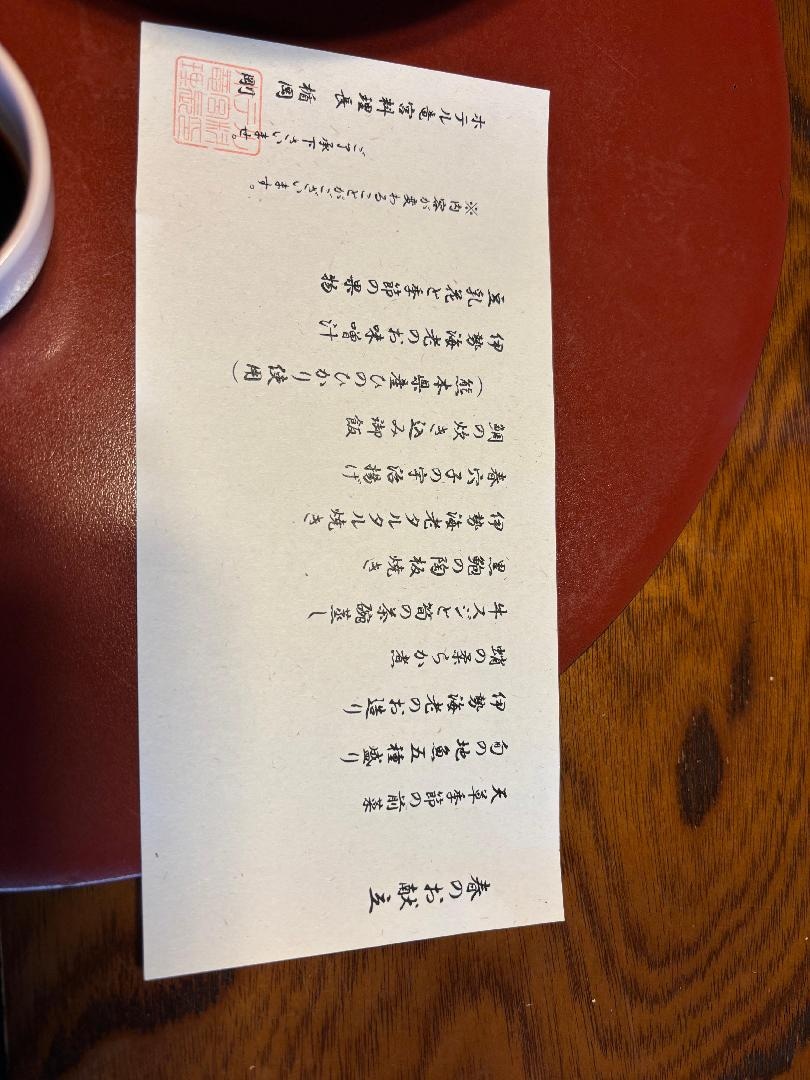 春のお献立
天草季節の前菜
旬の地魚五種盛り
伊勢海老のお造り
蛸の柔らか煮
牛スジと筍の茶碗蒸し
黒鮑の陶板焼き
伊勢海老タルタル焼き
春穴子の宇治揚げ
鯛の炊き込み御飯
(熊本県産ひのひかり使用)
伊勢海老のお味噌汁
豆乳花と季節の果物
※内容が変わることがございます。
ご了承下さいませ。
ホテル竜宮料理長 楯岡 剛